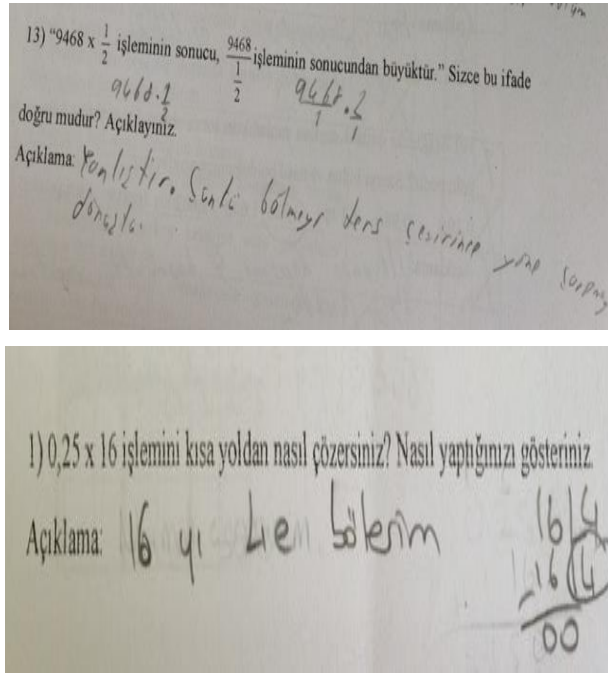 13) "9468 x 1/2 işleminin sonucu, 9468/(1/2) işleminin sonucundan büyüktür." Sizce bu ifade
9468.1/2
doğru mudur? Açıklayınız.
Açıklama: Yanlıştır. Çünkü bölmeyi ters çevirince yine
1) 0,25 x 16 işlemini kısa yoldan nasıl çözersiniz? Nasıl yaptığınızı gösteriniz.
Açıklama: 16 yı 4e bölerim
16 4
-16 4
00